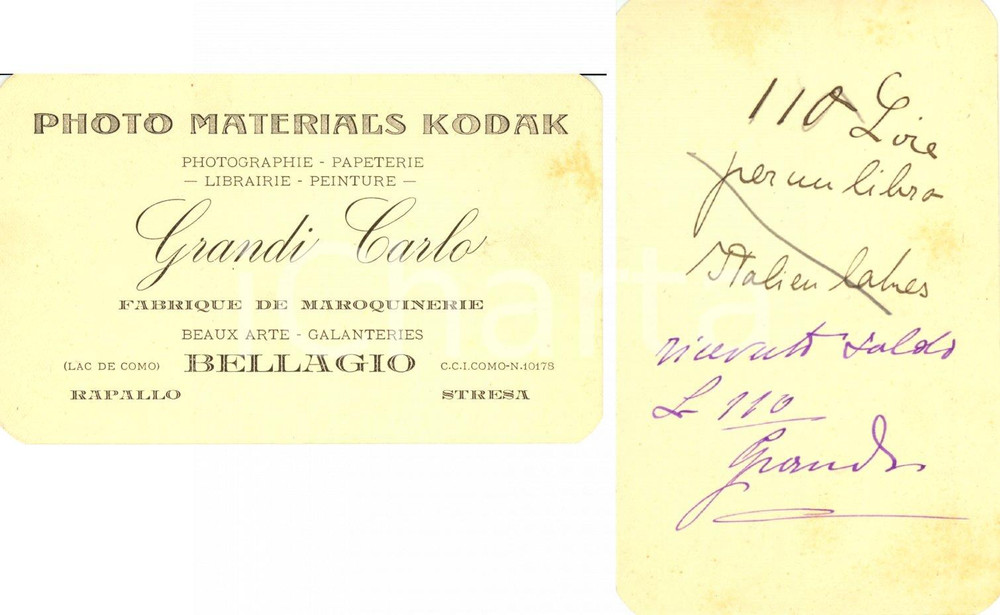 PHOTO MATERIALS KODAK
PHOTOGRAPHIE - PAPETERIE
— LIBRAIRIE - PEINTURE —
Grandi Carlo
FABRIQUE DE MAROQUINERIE
BEAUX ARTE - GALANTERIES
(LAC DE COMO) BELLAGIO C.C.I.COMO-N.10178
RAPALLO STRESA
110 Lire
per un libro
Italien
ricevuto saldo
L 110
Grandi